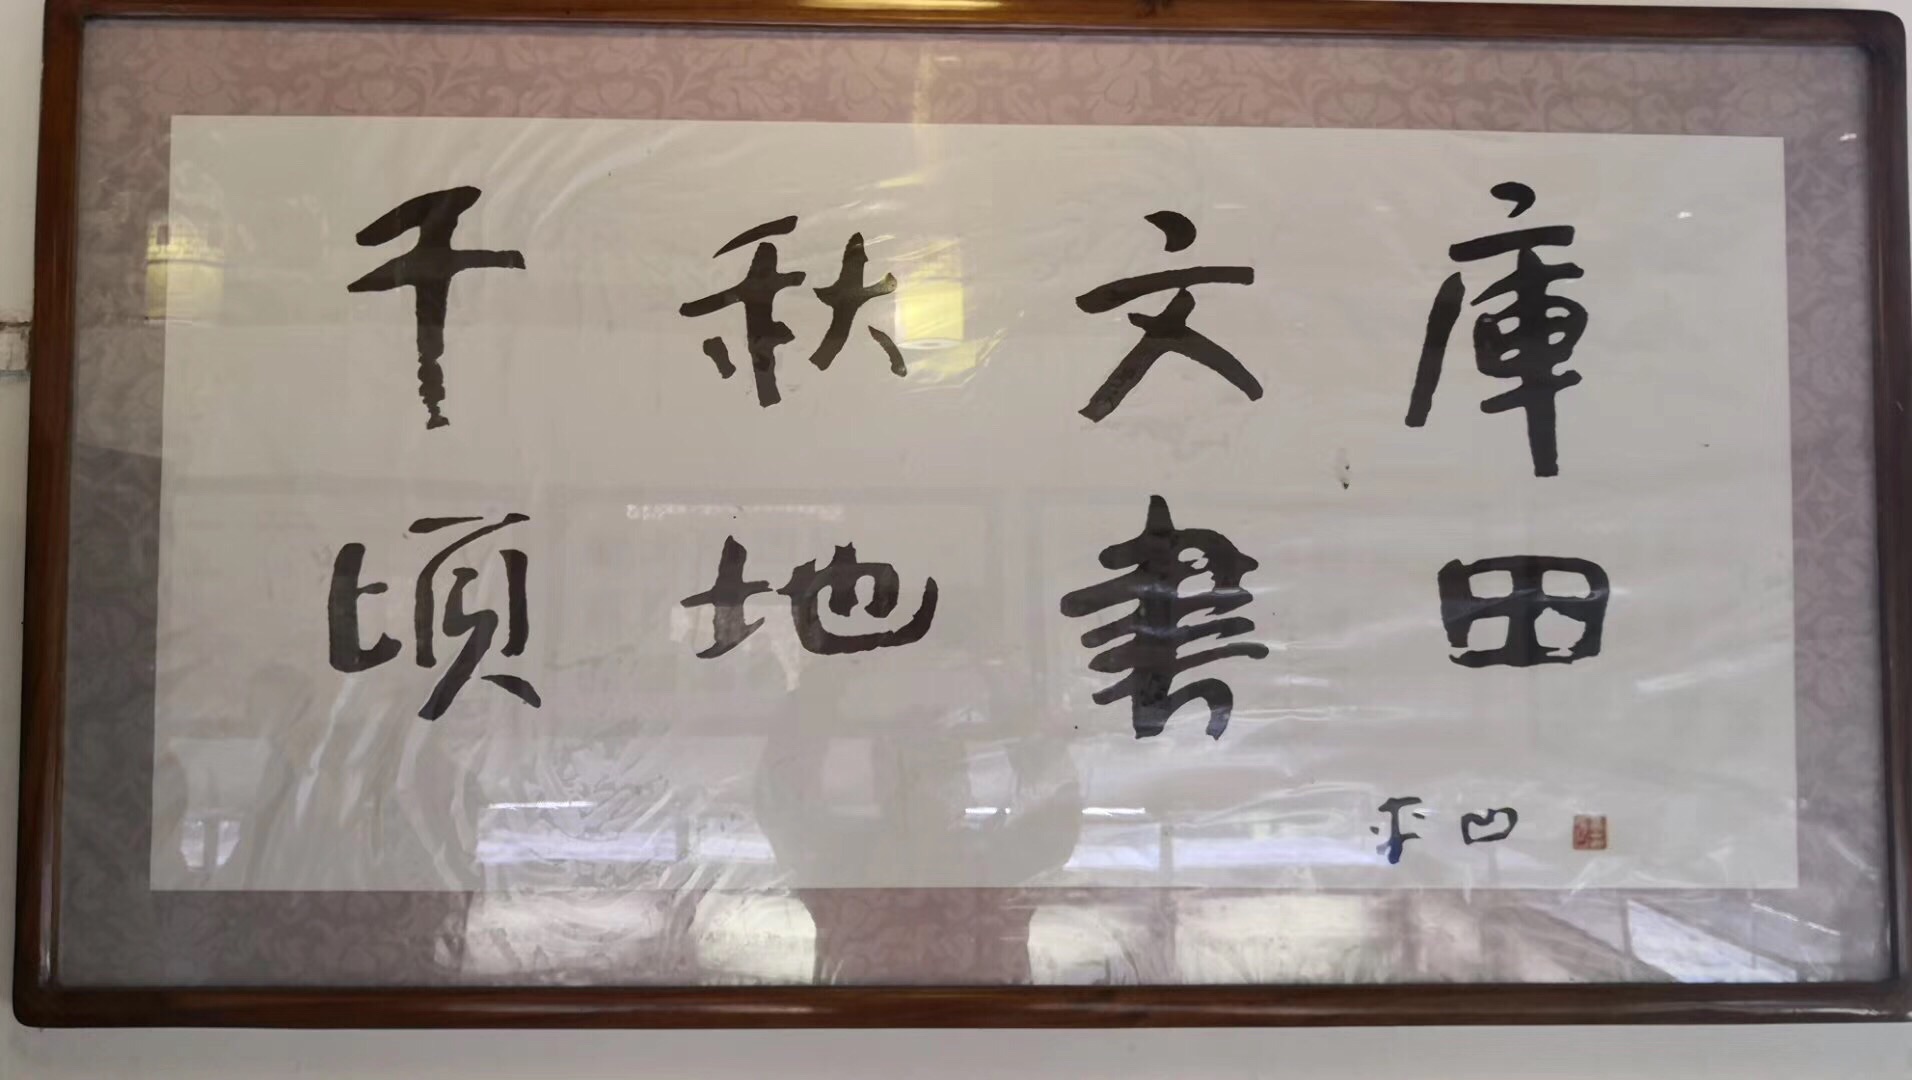 千秋文庫
頃地書田
平凹